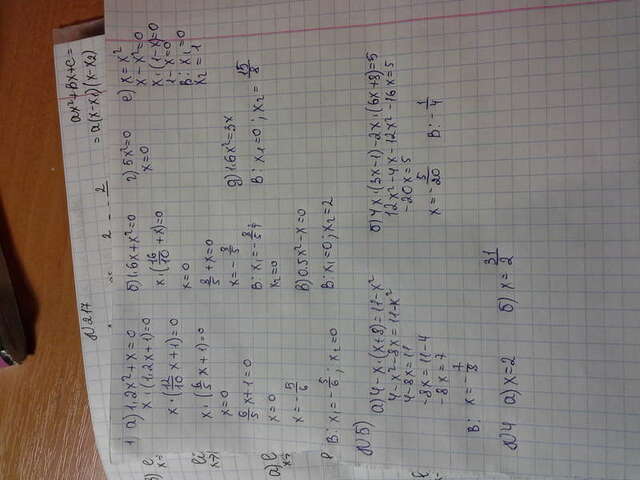 ax²+bx+c=
=a(x-x₁)(x-x₂)
№217
1 а) 1.2x²+x=0
x·(1.2x+1)=0
x·(12/10 x+1)=0
x·(6/5 x+1)=0
x=0
6/5 x+1=0
x=0
x=-5/6
В: x₁=-5/6; x₂=0
б) 1.6x+x²=0
x·(16/10+x)=0
x=0
8/5+x=0
x=-8/5
В: x₁=-8/5;
x₂=0
в) 0.5x²-x=0
В: x₁=0; x₂=2
г) 5x²=0
x=0
д) 1.6x²=3x
В: x₁=0; x₂=15/8
е) x=x²
x-x²=0
x·(1-x)=0
1-x=0
В: x₁=0
x₂=1
№3)
а) 4-x·(x+8)=11-x²
4-x²-8x=11-x²
4-8x=11
-8x=11-4
-8x=7
В: x=-7/8
б) 4x·(3x-1)-2x·(6x+8)=5
12x²-4x-12x²-16x=5
-20x=5
x=-5/20
В: -1/4
№4 а) x=2
б) x=31/2